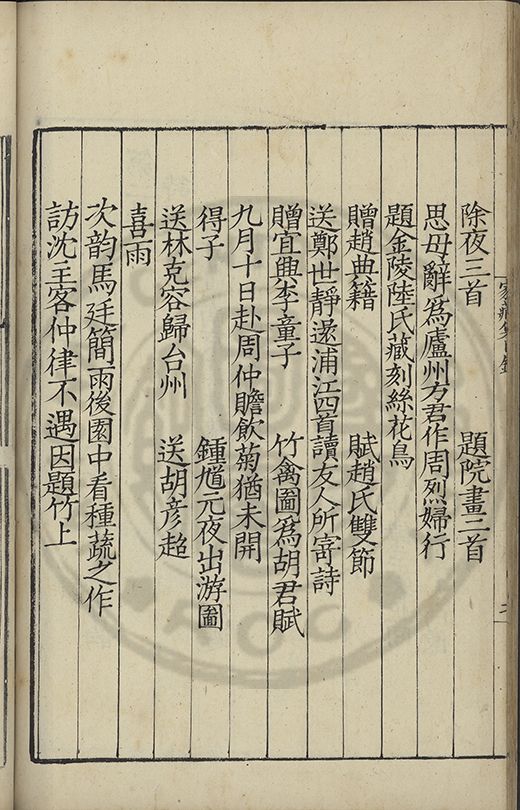 除夜三首　題院畫二首
思母辭爲廬州方君作周烈婦行
題金陵陸氏藏刻絲花鳥
贈趙典籍　賦趙氏雙節
送鄭世靜還浦江四首讀友人所寄詩
贈宜興李童子　竹禽圖爲胡君賦
九月十日赴周仲瞻飲菊猶未開
得子　鍾馗元夜出游圖
送林克容歸台州　送胡彦超
喜雨
次韵馬廷簡雨後園中看種蔬之作
訪沈主客仲律不遇因題竹上